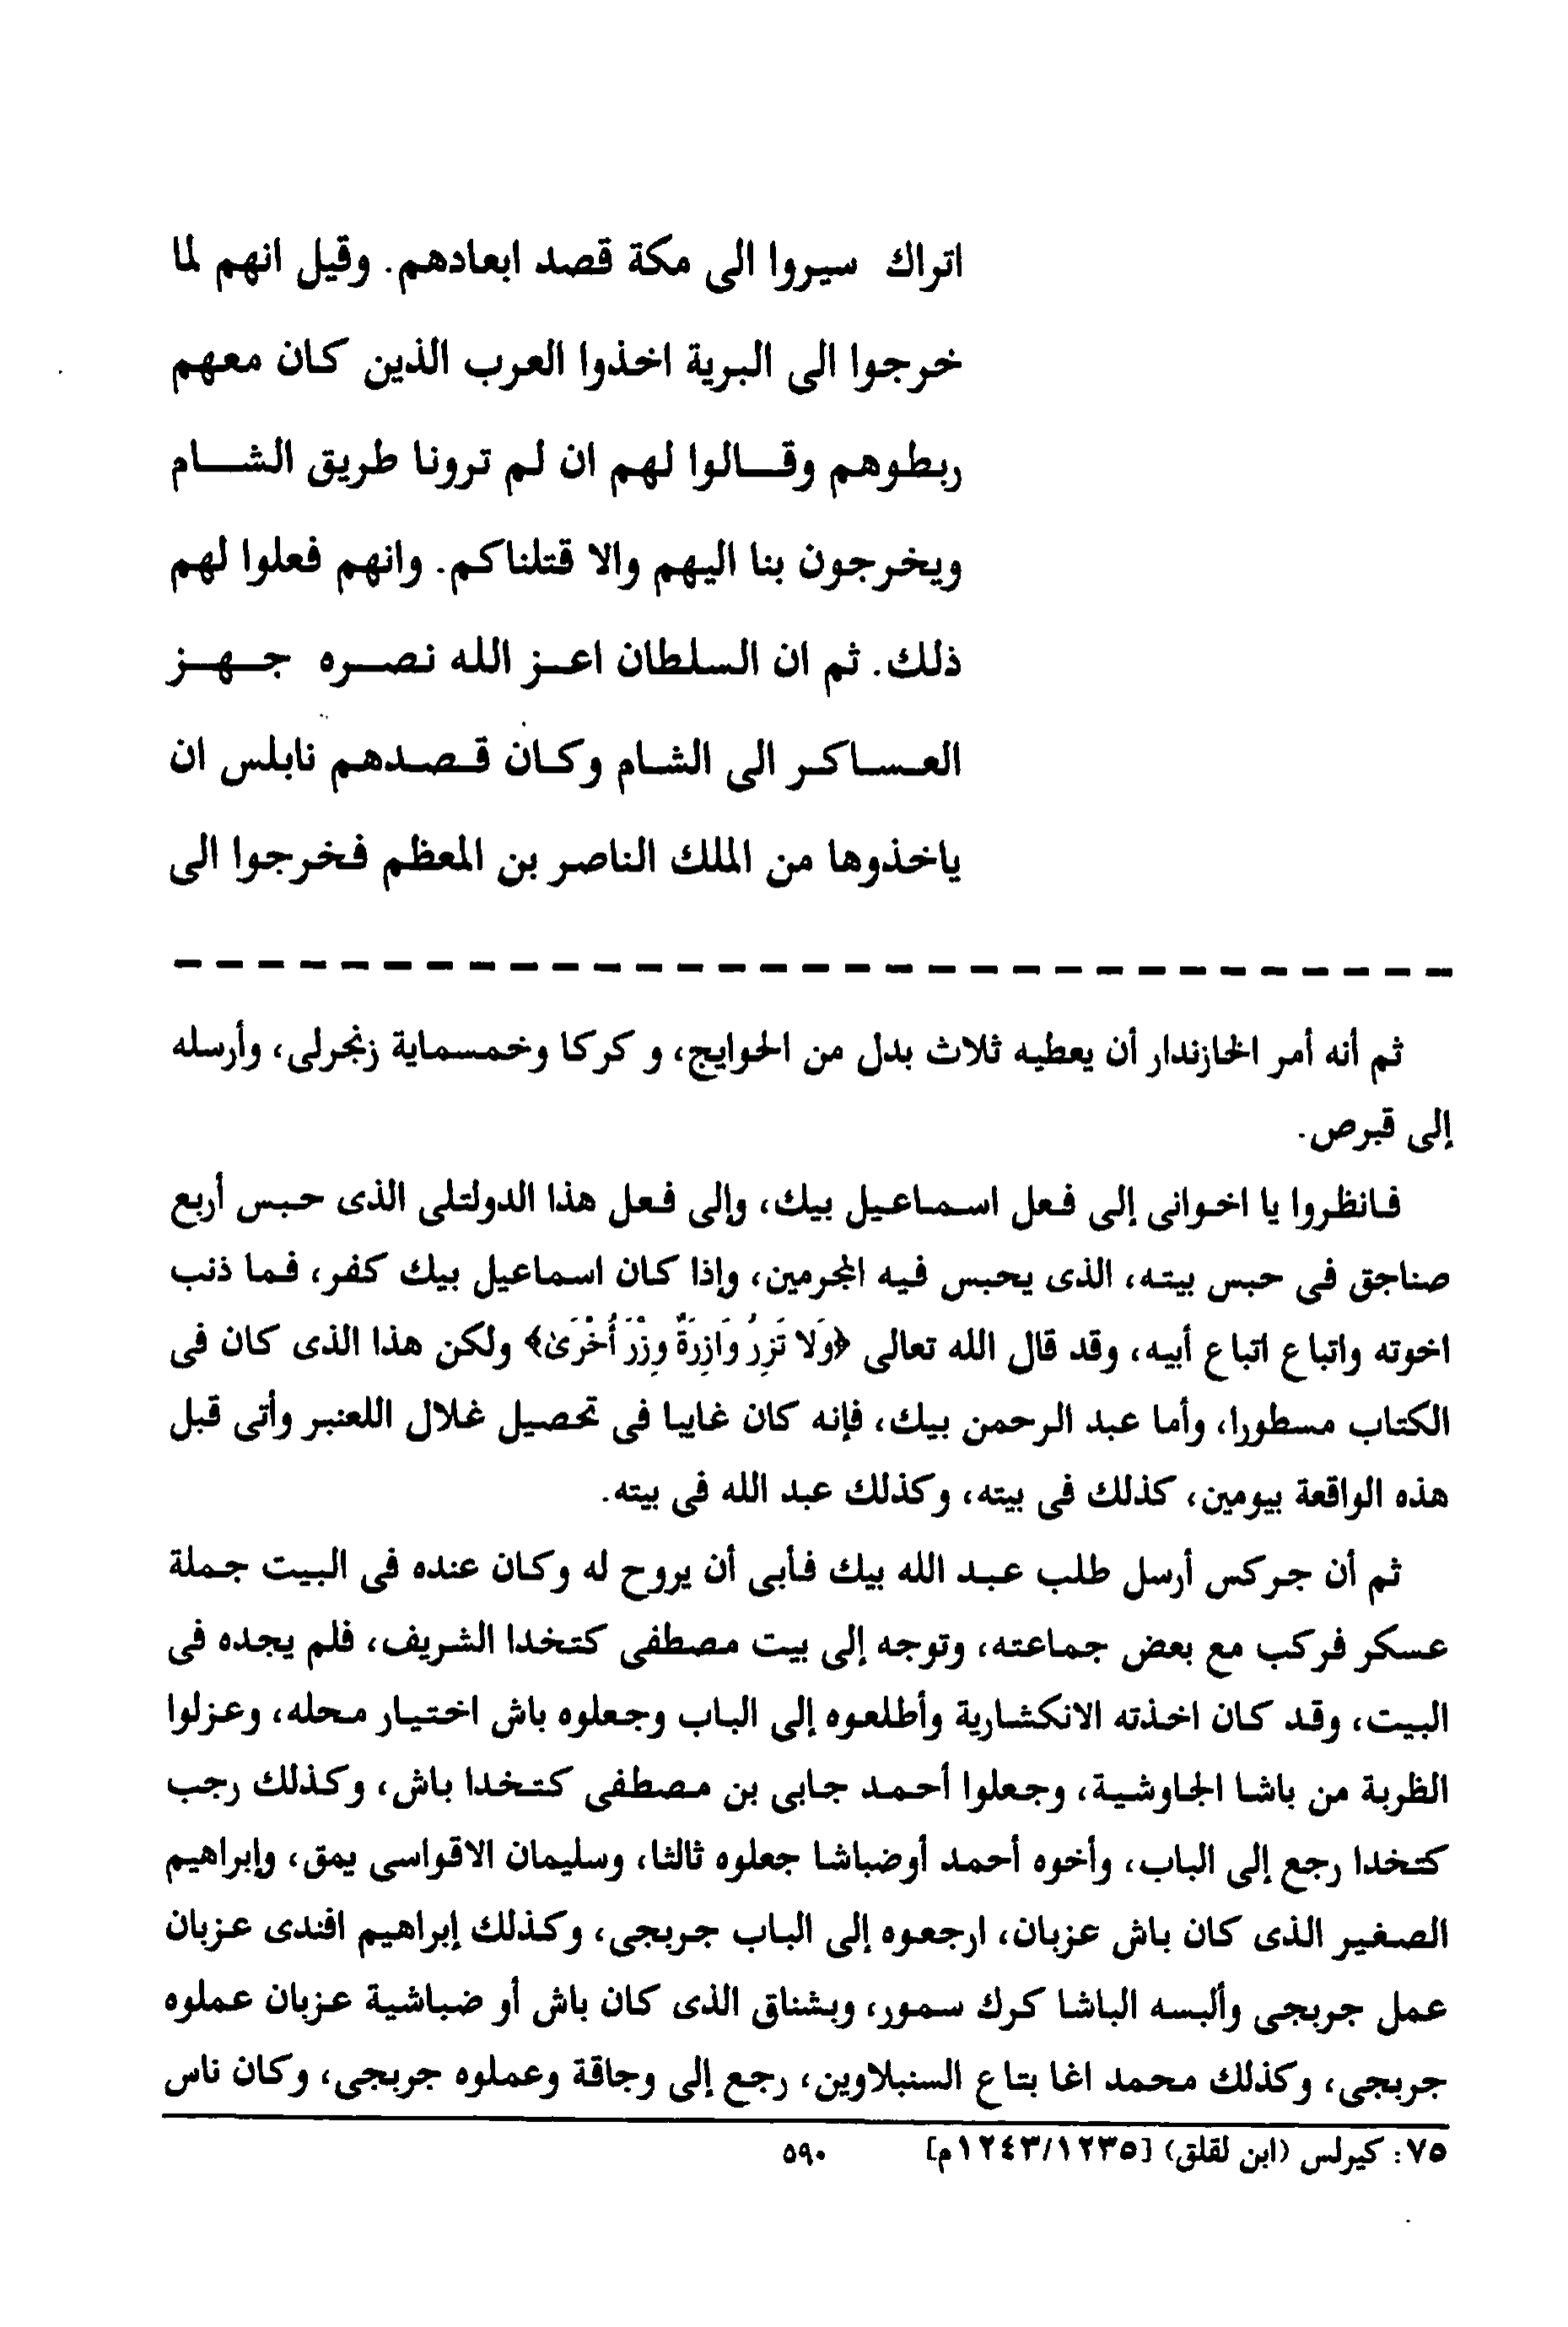 اتراك سيروا الى مكة قصد ابعادهم. وقيل انهم لما
خرجوا الى البرية اخذوا العرب الذين كان معهم
ربطوهم وقالوا لهم ان لم ترونا طريق الشام
ويخرجون بنا اليهم والا قتلناكم. وانهم فعلوا لهم
ذلك. ثم ان السلطان اعز الله نصره جهز
العساكر الى الشام وكان قصدهم نابلس ان
ياخذوها من الملك الناصر بن المعظم فخرجوا الى
ثم أنه أمر الخازندار أن يعطيه ثلاث بدل من الحوايج، و كركا وخمسماية زنجرلى، وأرسله
إلى قبرص.
فانظروا يا اخوانى إلى فعل اسماعيل بيك، وإلى فعل هذا الدولتلى الذى حبس أربع
صناجق فى حبس بيته، الذى يحبس فيه المجرمين، وإذا كان اسماعيل بيك كفر، فما ذنب
اخوته واتباع اتباع أبيه، وقد قال الله تعالى ﴿وَلا تَزِرُ وَازِرَةٌ وِزْرَ أُخْرَىٰ﴾ ولكن هذا الذى كان فى
الكتاب مسطورا، وأما عبد الرحمن بيك، فإنه كان غايبا فى تحصيل غلال اللعنبر وأتى قبل
هذه الواقعة بيومين، كذلك فى بيته، وكذلك عبد الله فى بيته.
ثم أن جركس أرسل طلب عبد الله بيك فأبى أن يروح له وكان عنده فى البيت جملة
عسكر فركب مع بعض جماعته، وتوجه إلى بيت مصطفى كتخدا الشريف، فلم يجده فى
البيت، وقد كان اخذته الانكشارية وأطلعوه إلى الباب وجعلوه باش اختيار محله، وعزلوا
الظربة من باشا الجاوشية، وجعلوا أحمد جابى بن مصطفى كتخدا باش، وكذلك رجب
كتخدا رجع إلى الباب، وأخوه أحمد أوضباشا جعلوه ثالثا، وسليمان الاقواسى يمق، وإبراهيم
الصغير الذى كان باش عزبان، ارجعوه إلى الباب جربجى، وكذلك إبراهيم افندى عزبان
عمل جربجى وألبسه الباشا كرك سمور، وبشناق الذى كان باش أو ضباشية عزبان عملوه
جربجى، وكذلك محمد اغا بتاع السنبلاوين، رجع إلى وجاقة وعملوه جربجى، وكان ناس
٧٥: كيرلس (ابن لقلق) [١٢٤٣/١٢٣٥م] ٥٩٠